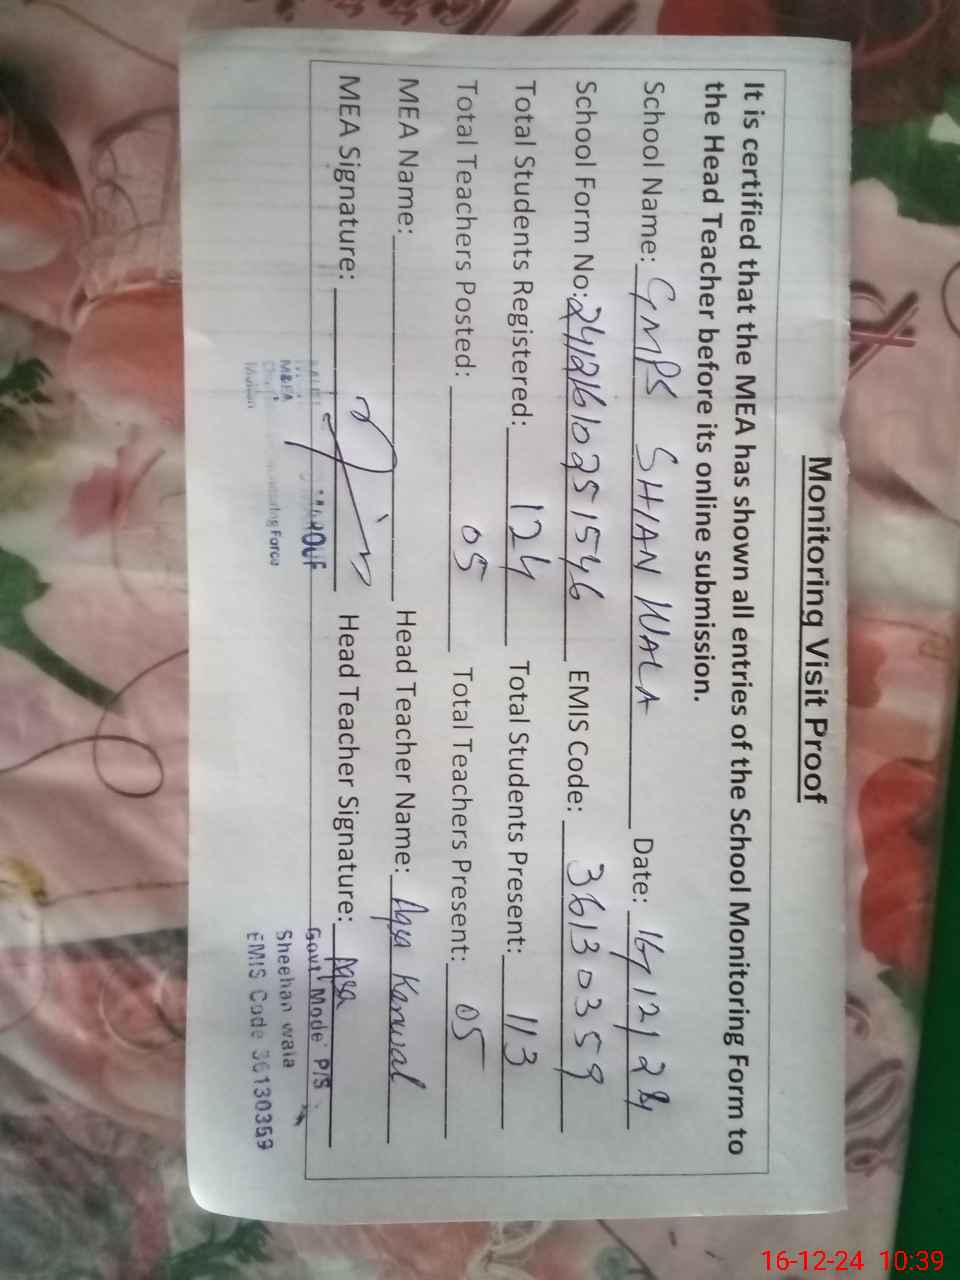 Monitoring Visit Proof
It is certified that the MEA has shown all entries of the School Monitoring Form to
the Head Teacher before its online submission.
School Name: GMPS SHIAN WALA Date: 16/12/24
School Form No: 24121610251546 EMIS Code: 36130359
Total Students Registered: 124 Total Students Present: 113
Total Teachers Posted: 05 Total Teachers Present: 05
MEA Name: Head Teacher Name: Aqsa Kanwal
MEA Signature: Head Teacher Signature: Aqsa
MAROUF
M&EA
Monitoring Force
Multan
Govt Model P/S
Sheehan wala
EMIS Code 36130359
16-12-24 10:39